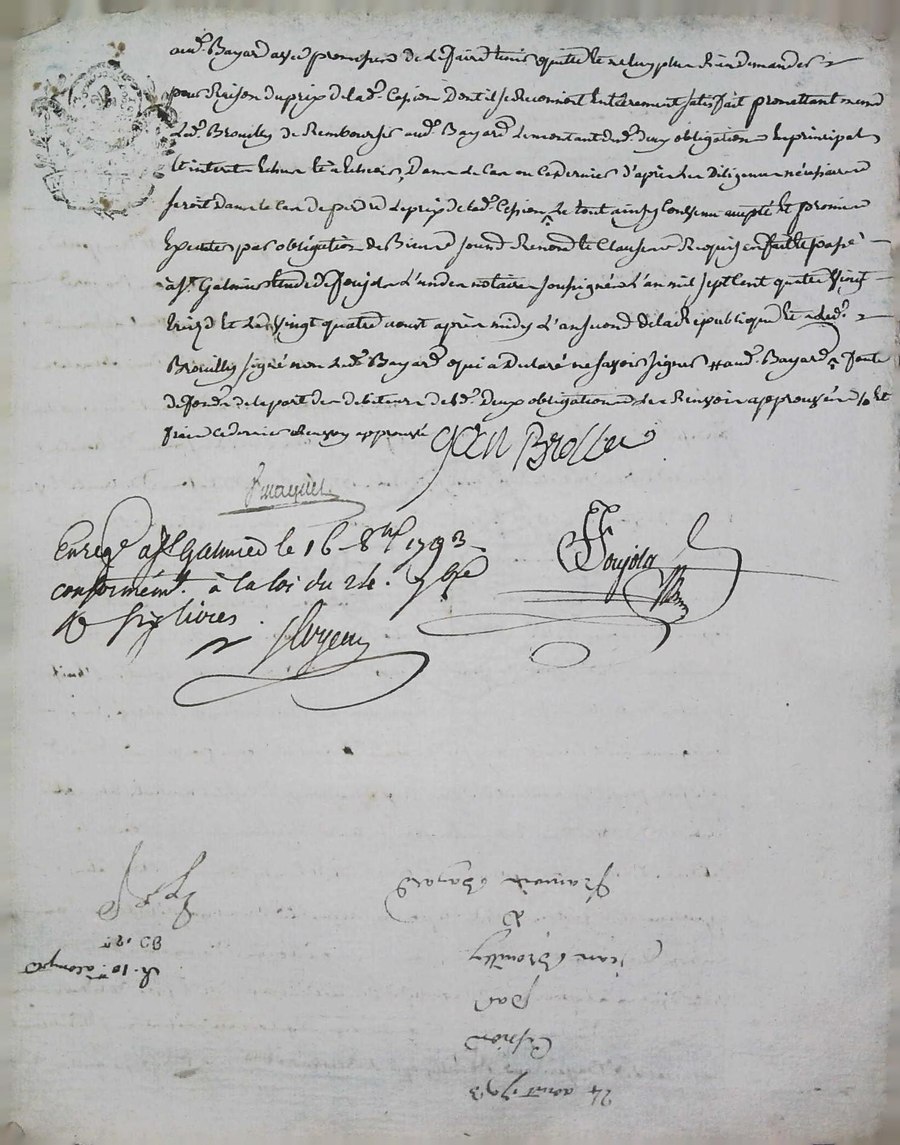 aud. Bayard avec promesse de le faire tenir quitte et ne luy plus rien demander
pour Raison du prix de lad. Cession Dont il se Reconnoit Entièrement satisfait promettant
Led. Brouilly de Rembourser aud. Bayard Le montant desd. deux obligations En principal
et interets Echus et à Echoir, Dans le Cas ou Ce dernier d'après les Diligences nécessaires
seroit Dans le Cas de perdre Le prix de lad. Cession, Le tout ainsy Convenu accepté Et promis
Executer par obligation de Biens soumis Renonc. et Clauses Requises fait et passé
à St. Galmier Etude de Foujols L'un des notaires soussignés L'an mil sept Cent quatre vingt
treize Et Le vingt quatre aoust après midy L'an second de la République et a Led.
Brouilly signé non Led. Bayard qui a Déclaré ne savoir signer aud. Bayard, faute
de fonds de la part des debiteurs desd. Deux obligations les Renvois approuvés
ce dernier Renvoy approuvé
Jean
Enreg. a St Galmier le 16 8bre 1793
conformément à la loi du 24. 7bre
Rx six livres
Foujols
24 aout 1793
Cession
par
Jean Brouilly
à
francois Bayard
R. 10